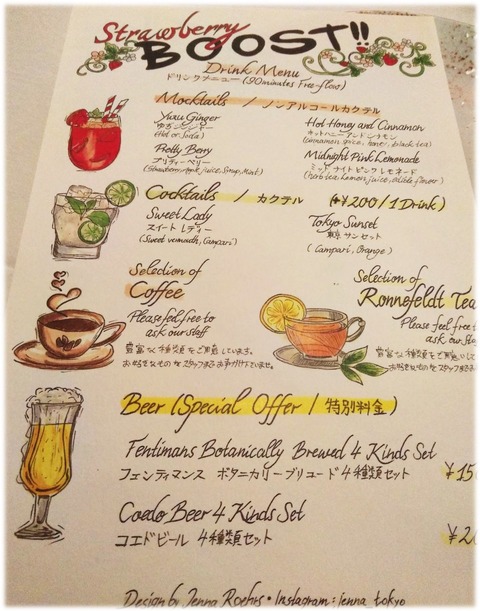 Strawberry
BOOST!!
Drink Menu
ドリンクメニュー (90minutes Free-flow)
Mocktails / ノンアルコールカクテル
Yuzu Ginger
ゆずジンジャー
(Hot or Soda)
Pretty Berry
プリティーベリー
(Strawberry, Apple juice, Soup, Mint)
Hot Honey and Cinnamon
ホットハニーアンドシナモン
(cinnamon, spice, honey, black tea)
Midnight Pink Lemonade
ミッドナイトピンクレモネード
(herbtea, Lemon juice, edible flower)
Cocktails カクテル (+¥200/1Drink)
Sweet Lady
スイートレディー
(Sweet vermouth, Campari)
Tokyo Sunset
東京サンセット
(Campari, Orange)
Selection of
Coffee
Please feel free to
ask our staff
豊富な種類をご用意しています。
Selection of
Ronnefeldt Tea
Please feel free t
ask our staff
豊富な種類をご用意しています
Beer (Special Offer / 特別料金)
Fentimans Botanically Brewed 4 Kinds Set
フェンティマンス ボタニカリーブリュード 4種類セット
¥15
Coedo Beer 4 Kinds Set
コエドビール 4種類セット
¥2
Design by Jenna Roehrs • Instagram: jenna_tokyo